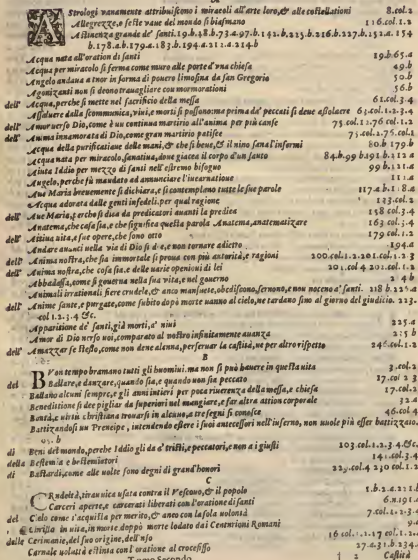 A
Strologi vanamente attribuiscono i miracoli all'arte loro,& alle costellationi 8.col.2
Allegrezze,e feste vane del mondo si biasmano 116.col.1.2
Astinenza grande de' santi.19.b.38.b.73.a.97.b.142.b.225.b.216.b.227.b.152.a.154
b.178.a.b.179.a.183.b.194.a.211.a.214.b
Acqua nata all'oration di santi 19.b.65.a
Acqua per miracolo si ferma come muro alle porte d'vna chiesa 49.b
Angelo andaua a tuor in forma di pouero limosina da san Gregorio 50.b
Agonizanti non si deono trauagliare con mormorationi 56.b
dell' Acqua,perche si mette nel sacrificio della messa 61.col.3.4
Assoluere dalla scommunica,viui,e morti si possono ma prima da' peccati si deue assoluere 63.col.1.2.3.4
dell' Amor verso Dio,come è un continuo martirio all'anima per più cause 75.col.1.2.76.col.1.2
dell' Anima innamorata di Dio,come gran martirio patisce 75.col.1.2.76.col.1.2
Acqua della purificatione delle mani,& che si beue,& il nino sana l'infermi 80.b 179.b
Acqua nata per miracolo,sanatiua,doue giacea il corpo d'un santo 84.b.99.b191.b.112.a
Aiuta Iddio per mezzo di santi nell'estremo bisogno 99.b.121.a
Angelo,perche fù mandato ad annunciare l'incarnatione 111.a
Aue Maria breuemente si dichiara,e si contemplano tutte le sue parole 117.a.b.118.a
Acqua adorata dalle genti infedeli,per qual ragione 133.col.2
dell' Aue Maria,e perche si dica da predicatori auanti la predica 158.col.3.4
Anatema,che cosa sia,e che significa questa parola Anatema,anatematizare 163.col.4
dell' Attina uita,e sue opere,che sono otto 179.col.1.2
Andare auanti nella via di Dio si de-e,e non tornare adietro 194.a
dell' Anima nostra,che sia immortale si proua con più autorità,e ragioni 200.col.1.2.201.col.1.2.3
Anima nostra,che cosa sia,e delle varie openioni di lei 201.col.4 202.col.1.2
Abbadassa,come si gouerna nella sua vita,e nel gouerno 2 4.b
Animali irrationali fiere crudele,& anco mansuete,obediscono,seruono,e non nuoceno a' santi. 218 b.225.a
dell' Anime sante,e purgate,come subito dopò morte uanno al cielo,ne tardano fino al giorno del giudicio. 223.
col 1.2.3.4 &c.
Apparitione de' santi,già morti,a' niui 225.a
Amor di Dio nerso noi,comparato al nostro infinitamente auanza 215 b
dell' Amazzar se stesso,come non dene alenna,perseruar la castità,ne per altro rispetto 246.col.1.2
B
Von tempo bramano tutti gli huomini,ma non si può hauere in questa uita 3.col.2
del Ballare,e danzare,quando sia,e quando non sia peccato 27.col 2 3
Ballano alcuni sempre,e gli anni intieri per poca riuerenza della messa,e chiesa 17.col.2
Beneditione si dee pigliar da superiori nel mangiare,e far altra attion corporale 32.a
Bontà,e uirtù christiana trouarsi in alcuno,a tre segni si conosce 46.col.4
Battizandosi un Prencipe,intendendo essere i suoi antecessori nell'inferno,non nuole più esser battizzato,
95.b
di Beni del mondo,perche Iddio gli da a' tristi,e peccatori,e non a i giusti 103.col.1.2.3.4.&c.
della Bestemia e bestemiatori 141.col.3.4
di Bastardi,come alle uolte sono degni di grand'honori 229.col.4 230 col.1.2
C
Rudeltà,tirannica usata contra il Vescouo,& il popolo 1.b.2.a.211.b
Carceri aperte,e carcerati liberati con l'oratione di santi 6.a.191.a
del Cielo come s'acquista per merito,& anco con la sola volontà 7.col.1.2.3.4
Christo in vita,in morte,doppò morte lodato dai Centurioni Romani 9.a
delle Cerimonie,del suo origine,dell'uso 16 col.1.17 col.1.2
Carnale uolontà estinta con l'oratione al crocefisso 27.a.31.b.234.
Tomo Secondo. 2 Castità